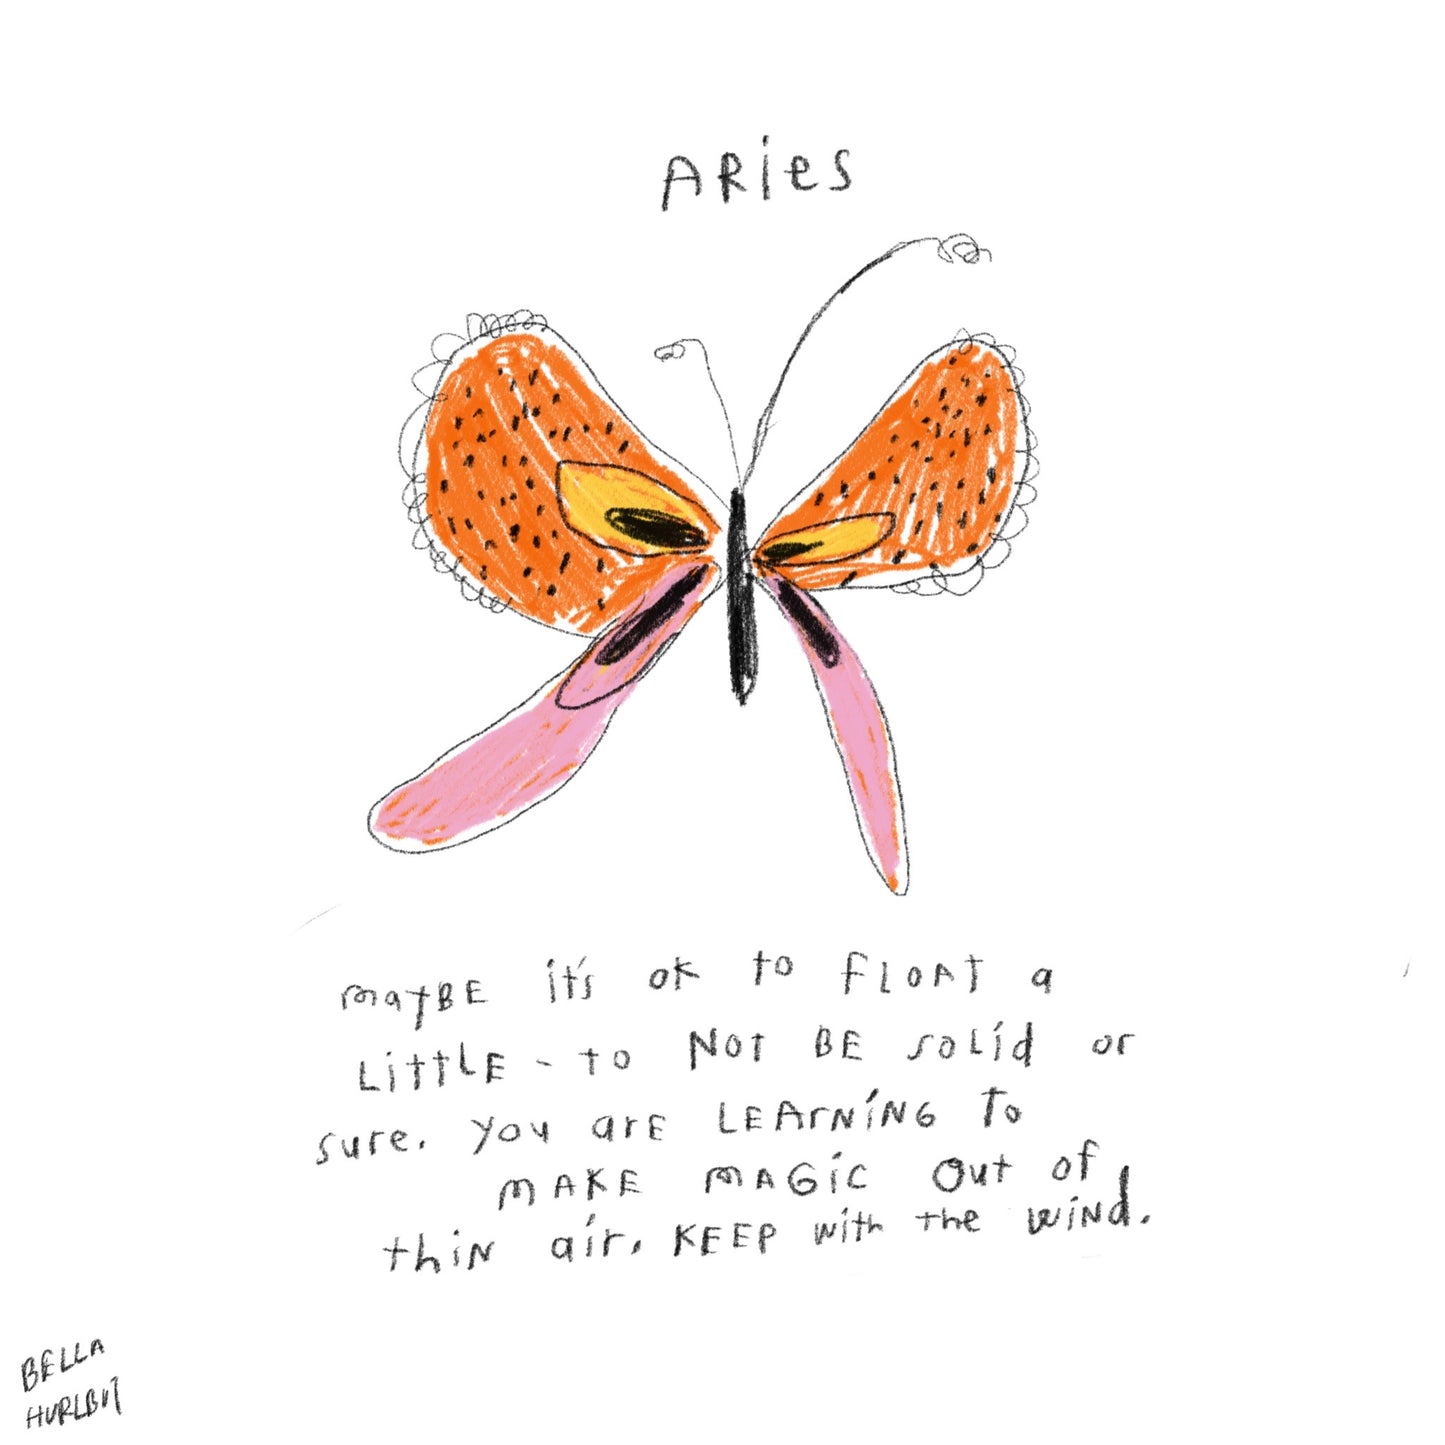 ARies
mayBE it's ok to FLOAT a
LittLE - to NOT BE soLid or
sure. you arE LEArNiNG To
MAKE MAGiC Out of
thiN air. KEEP with the wiNd.
BELLA
HURLBUT